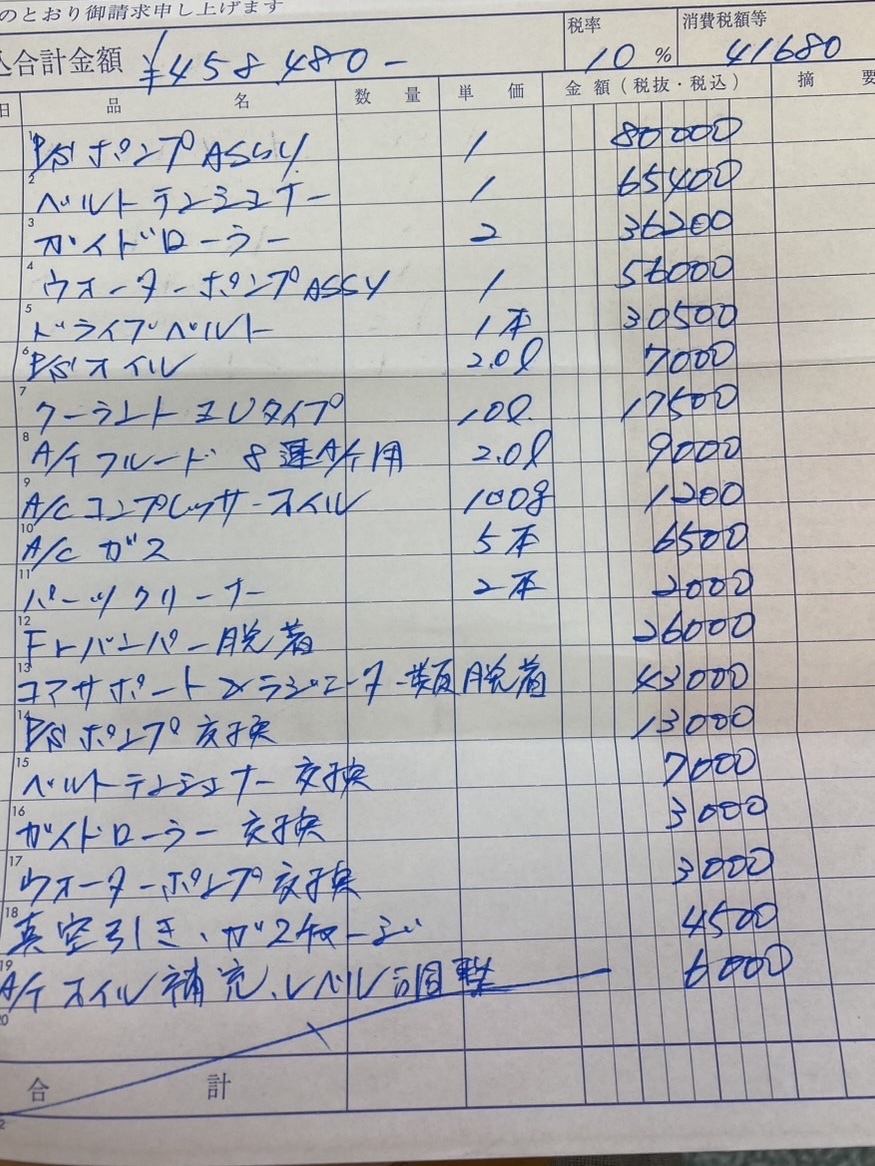 のとおり御請求申し上げます
込合計金額 ¥458,480- 税率 10% 消費税額等 41680
日 品名 数量 単価 金額(税抜・税込) 摘要
1 P/Sポンプ ASSY 1 80000
2 ベルトテンショナー 1 65400
3 ガイドローラー 2 36200
4 ウォーターポンプASSY 1 56000
5 ドライブベルト 1本 30500
6 P/Sオイル 2.0ℓ 7000
7 クーラント EUタイプ 10ℓ 17500
8 A/Tフルード 8速A/T用 2.0ℓ 9000
9 A/Cコンプレッサーオイル 100g 1200
10 A/Cガス 5本 6500
11 パーツクリーナー 2本 2000
12 Frバンパー脱着 26000
13 コアサポート&ラジエーター類脱着 43000
14 P/Sポンプ交換 13000
15 ベルトテンショナー交換 7000
16 ガイドローラー交換 3000
17 ウォーターポンプ交換 3000
18 真空引き、ガスチャージ 4500
19 A/Tオイル補充、レベル調整 6000
20
合計